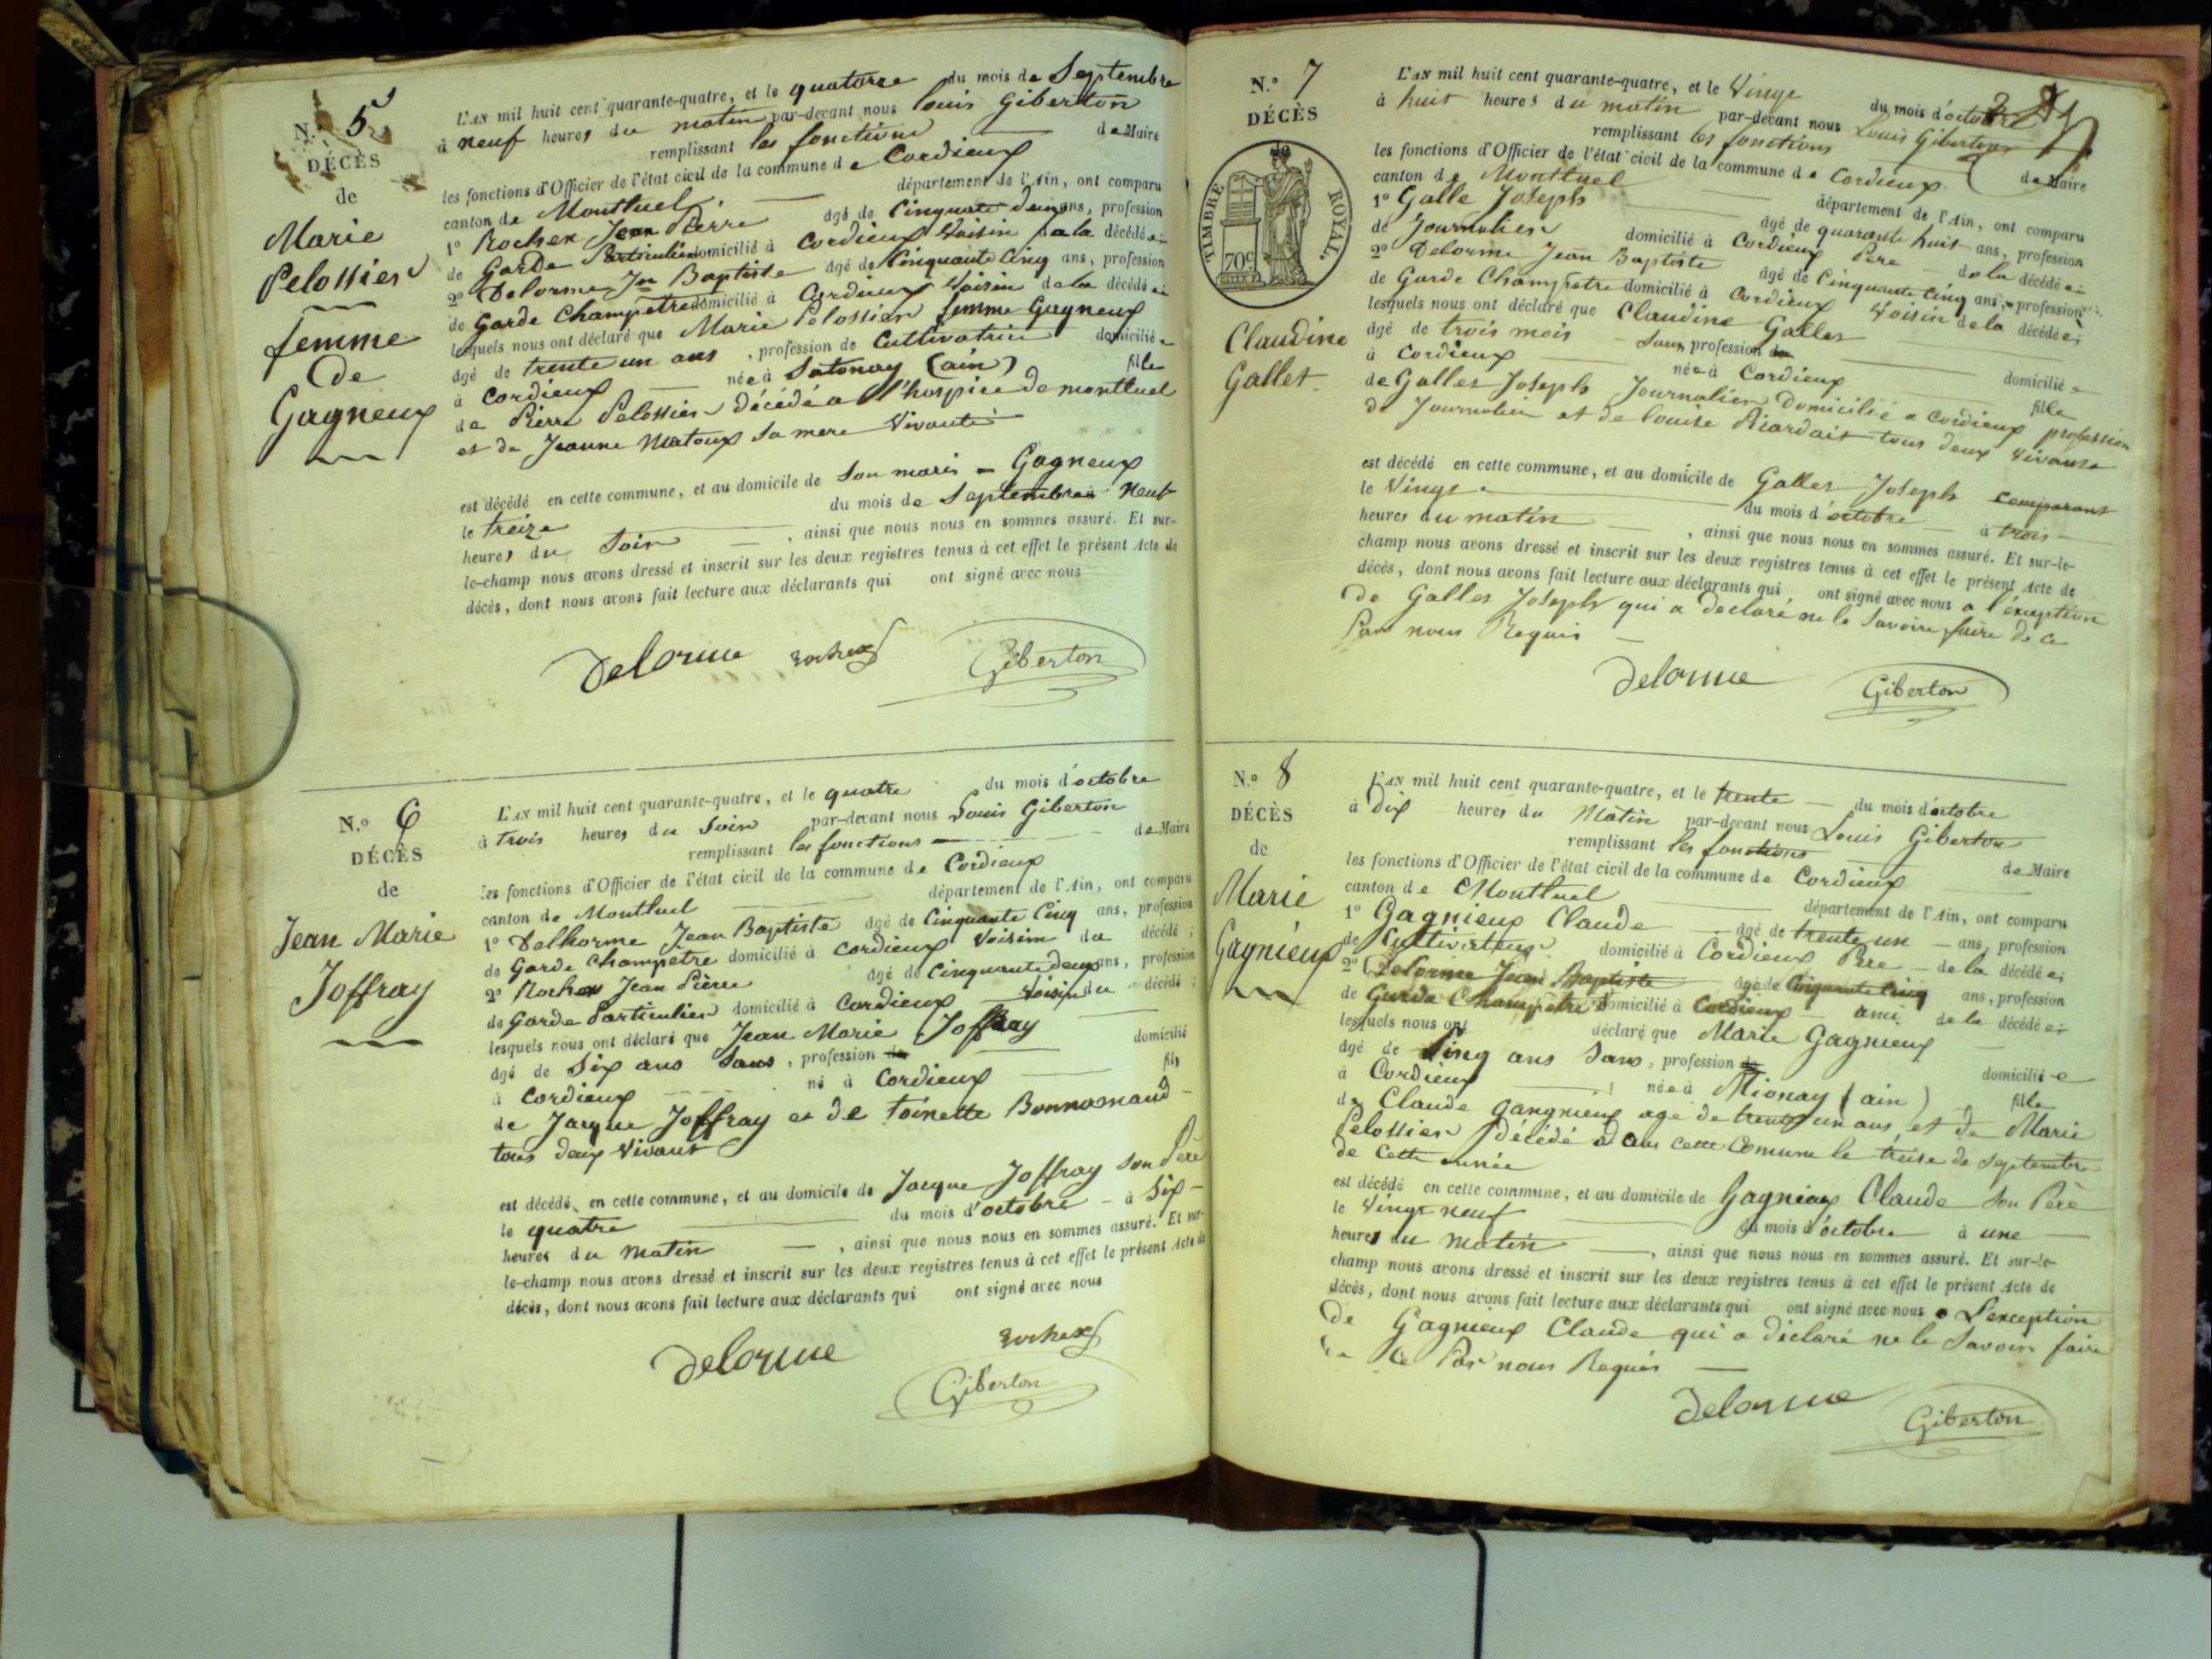 N.o 5
DÉCÈS
de
Marie
Pelossier
femme
De
Gagneux
L'AN mil huit cent quarante-quatre, et le quatorze du mois de Septembre
à neuf heures du matin par-devant nous louis Giberton
remplissant les fonctions de Maire
les fonctions d'Officier de l'état civil de la commune de Cordieux
canton de Montluel département de l'Ain, ont comparu
1o Rochex Jean Pierre âgé de Cinquante deux ans, profession
de Garde Particulier domicilié à Cordieux Voisin de la décédée
2o Delorme Jn Baptiste âgé de Cinquante Cinq ans, profession
de Garde Champetre domicilié à Cordieux Voisin de la décédée
lesquels nous ont déclaré que Marie Pelossier femme Gagneux
âgé de trente un ans, profession de Cultivatrice domiciliée
à Cordieux née à Satonay (ain) fille
de Pierre Pelossier décédé a l'hospice De montluel
et de Jeanne Matoux sa mere Vivante
est décédé en cette commune, et au domicile de Son maris Gagneux
le treize du mois de Septembre à Neuf
heures du Soir, ainsi que nous nous en sommes assuré. Et sur-
le-champ nous avons dressé et inscrit sur les deux registres tenus à cet effet le présent Acte de
décès, dont nous avons fait lecture aux déclarants qui ont signé avec nous
Delorme rochex Giberton
N.o 6
DÉCÈS
de
Jean Marie
Joffray
L'AN mil huit cent quarante-quatre, et le quatre du mois d'octobre
à trois heures du Soir par-devant nous Louis Giberton
remplissant les fonctions de Maire
les fonctions d'Officier de l'état civil de la commune de Cordieux
canton de Montluel département de l'Ain, ont comparu
1o Delhorme Jean Baptiste âgé de Cinquante Cinq ans, profession
de Garde Champetre domicilié à Cordieux Voisin du décédé ;
2o Rochex Jean Pierre âgé de Cinquante deux ans, profession
de Garde Particulier domicilié à Cordieux Voisin du décédé ;
lesquels nous ont déclaré que Jean Marie Joffray
âgé de Six ans Sans, profession de domicilié
à Cordieux né à Cordieux fils
de Jacque Joffray et de Toinette Bonnamand
tous deux Vivant
est décédé en cette commune, et au domicile de Jacque Joffray Son Pere
le quatre du mois d'octobre à Six
heures du matin, ainsi que nous nous en sommes assuré. Et sur-
le-champ nous avons dressé et inscrit sur les deux registres tenus à cet effet le présent Acte de
décès, dont nous avons fait lecture aux déclarants qui ont signé avec nous
Delorme rochex
Giberton
N.o 7
DÉCÈS
de
TIMBRE ROYAL.
70c
Claudine
Gallet
L'AN mil huit cent quarante-quatre, et le Vingt du mois d'octobre
à huit heures du matin par-devant nous Louis Giberton
remplissant les fonctions de Maire
les fonctions d'Officier de l'état civil de la commune de Cordieux
canton de Montluel département de l'Ain, ont comparu
1o Galle Joseph âgé de quarante huit ans, profession
de Journalier domicilié à Cordieux Pere de la décédée
2o Delorme Jean Baptiste âgé de Cinquante Cinq ans, profession
de Garde Champetre domicilié à Cordieux Voisin de la décédée
lesquels nous ont déclaré que Claudine Gallet
âgé de trois mois Sans profession de domiciliée
à Cordieux née à Cordieux fille
de Gallet Joseph Journalier Domicilié a Cordieux profession
de Journalier et de louise Ricardait tous deux Vivants
est décédé en cette commune, et au domicile de Gallet Joseph Comparant
le Vingt du mois d'octobre à trois
heures du matin, ainsi que nous nous en sommes assuré. Et sur-le-
champ nous avons dressé et inscrit sur les deux registres tenus à cet effet le présent Acte de
décès, dont nous avons fait lecture aux déclarants qui ont signé avec nous a l'éxception
De Gallet Joseph qui a declaré ne le Savoire faire de ce
Par nous Requis
Delorme Giberton
N.o 8
DÉCÈS
de
Marie
Gagnieux
L'AN mil huit cent quarante-quatre, et le trente du mois d'octobre
à dix heures du Matin par-devant nous Louis Giberton
remplissant les fonctions de Maire
les fonctions d'Officier de l'état civil de la commune de Cordieux
canton de Montluel département de l'Ain, ont comparu
1o Gagnieux Claude âgé de trente un ans, profession
de Cultivateur domicilié à Cordieux Pere de la décédée
2o Delorme Jean Baptiste âgé de Cinquante Cinq ans, profession
de Garde Champetre domicilié à Cordieux ami de la décédée
lesquels nous ont déclaré que Marie Gagnieux
âgé de Cinq ans Sans, profession de domiciliée
à Cordieux née à Mionay (ain) fille
de Claude Gangnieux age de trente un ans et De Marie
Pelossier décédé dans cette Comune le treise de septembre
de Cette année
est décédé en cette commune, et au domicile de Gagnieux Claude Son Pere
le Vingt neuf du mois d'octobre à une
heures du matin, ainsi que nous nous en sommes assuré. Et sur-le-
champ nous avons dressé et inscrit sur les deux registres tenus à cet effet le présent Acte de
décès, dont nous avons fait lecture aux déclarants qui ont signé avec nous a L'exception
De Gagnieux Claude qui a déclaré ne le Savoir faire
De Ce Par nous Requis
Delorme Giberton